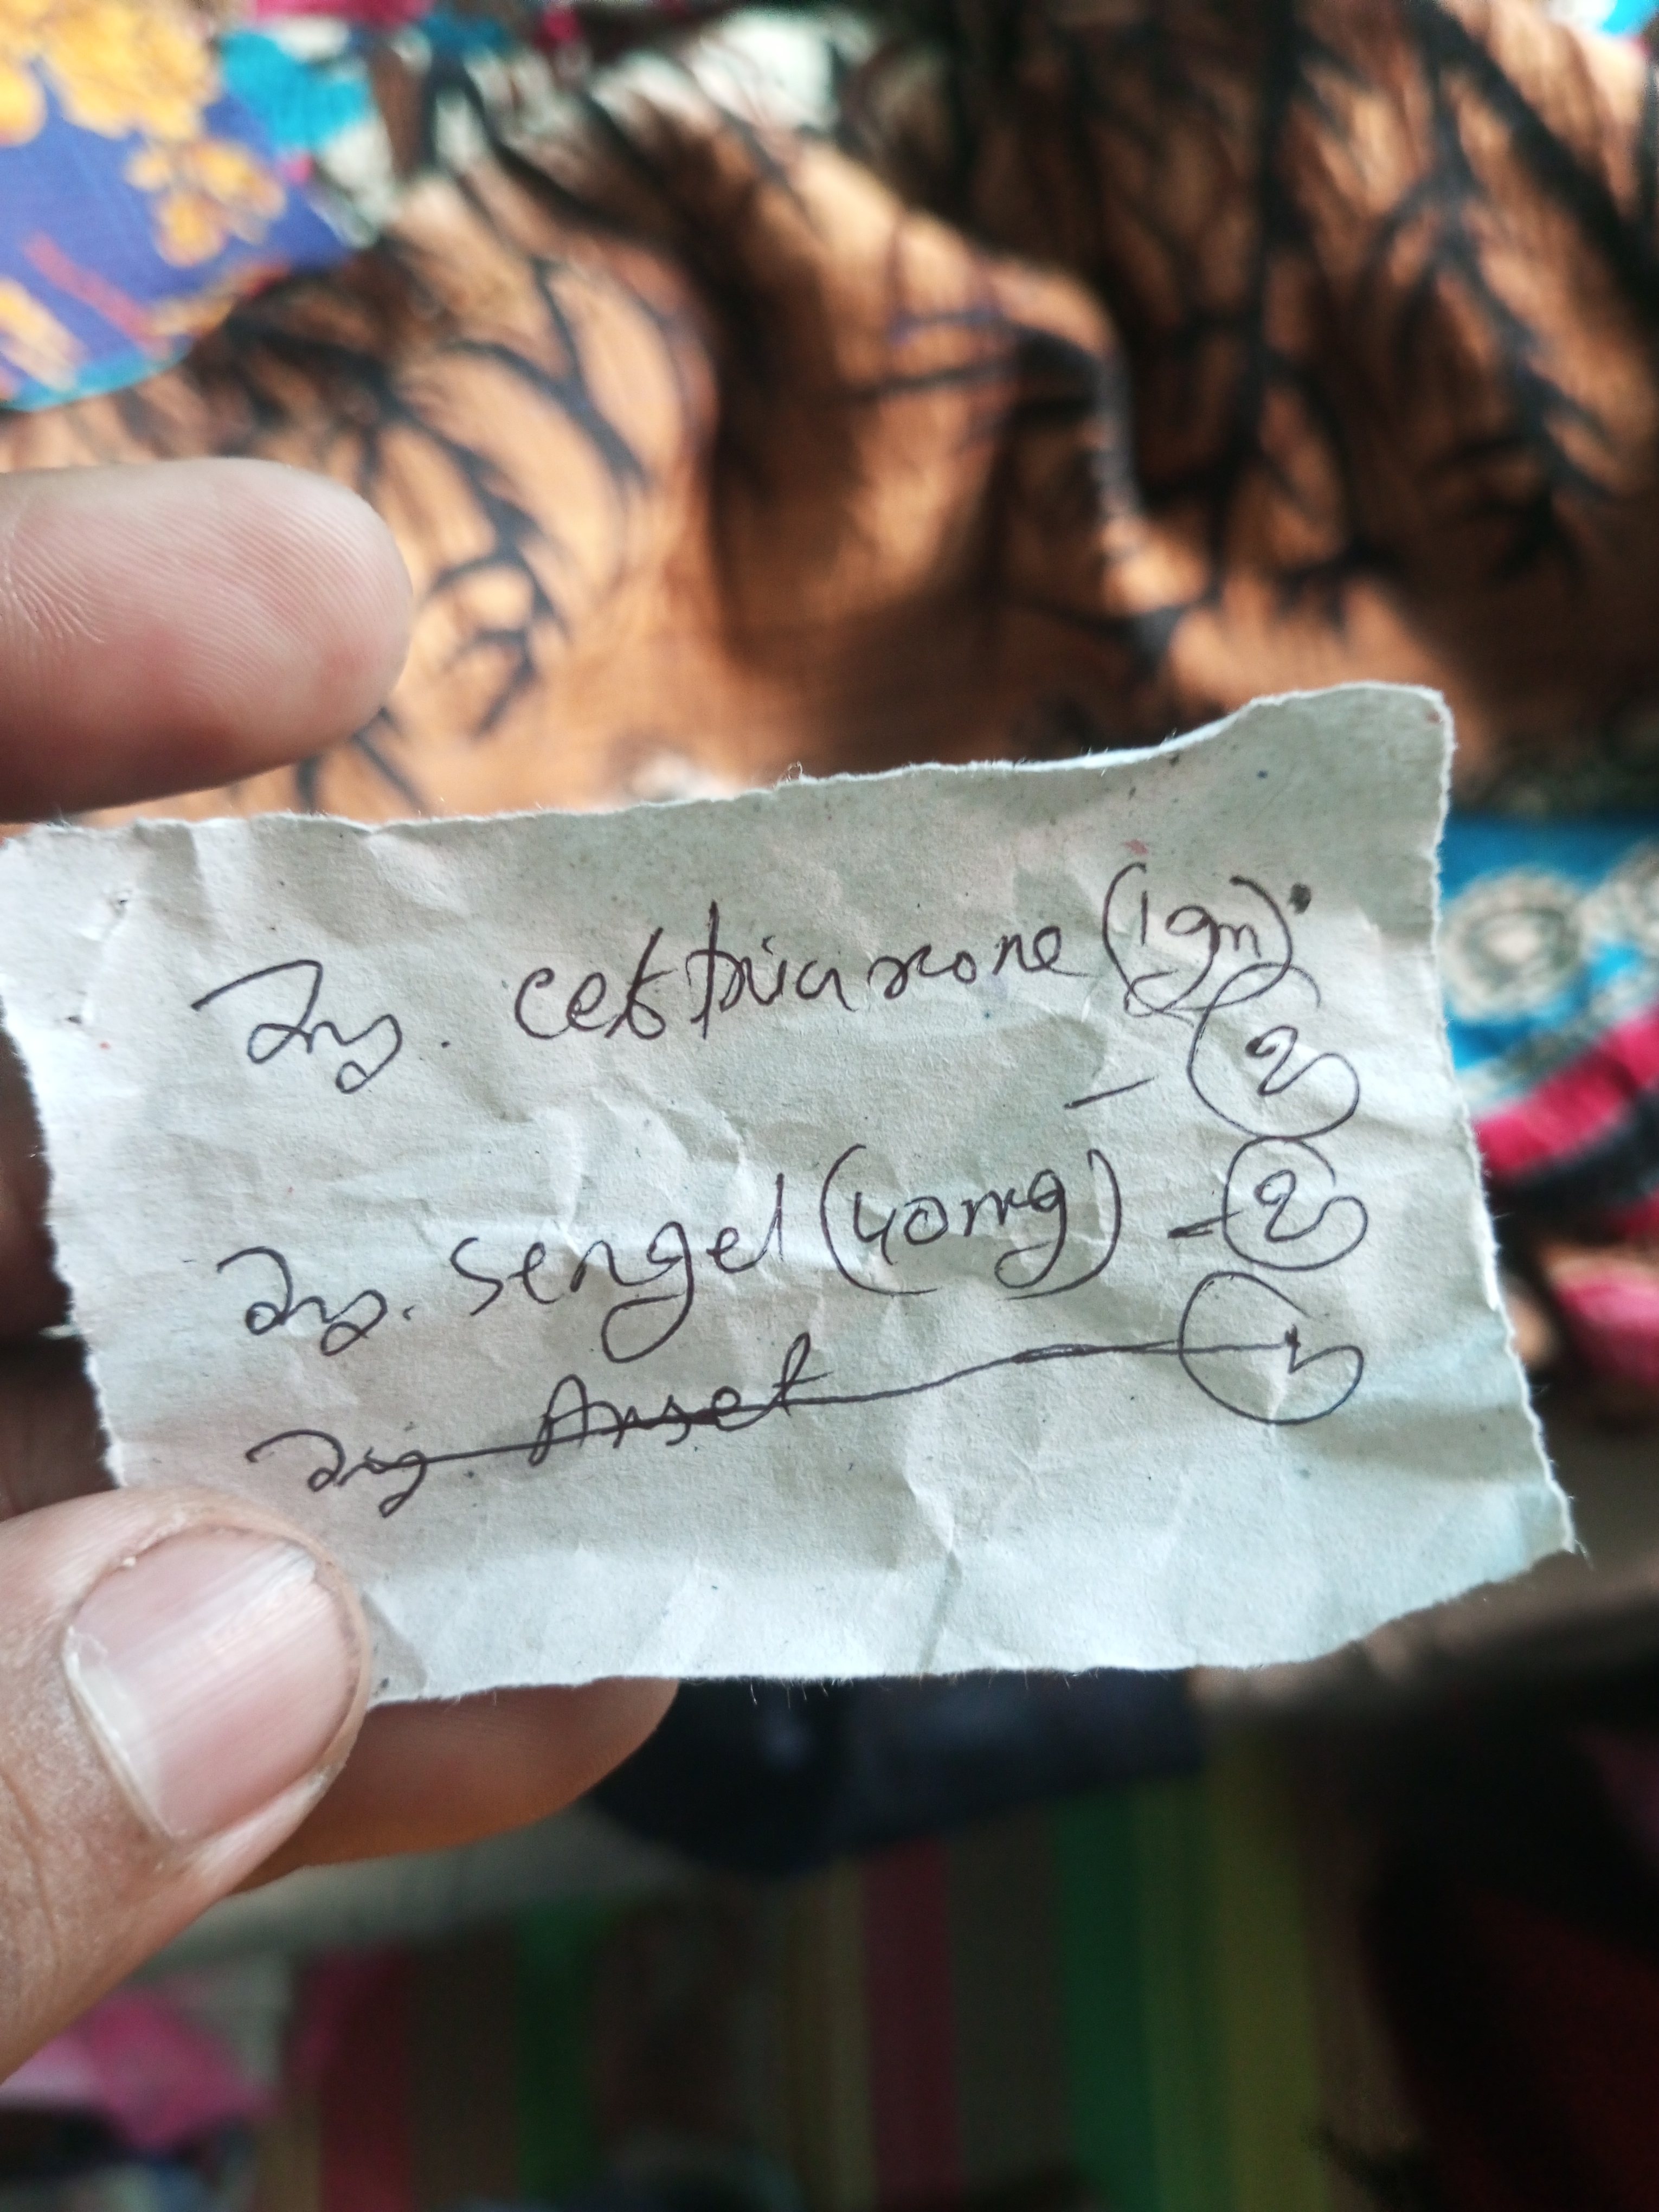 Inj. ceftriaxone (1gm)
- 2
Inj. Sergel (40mg) - 2
Inj Anset